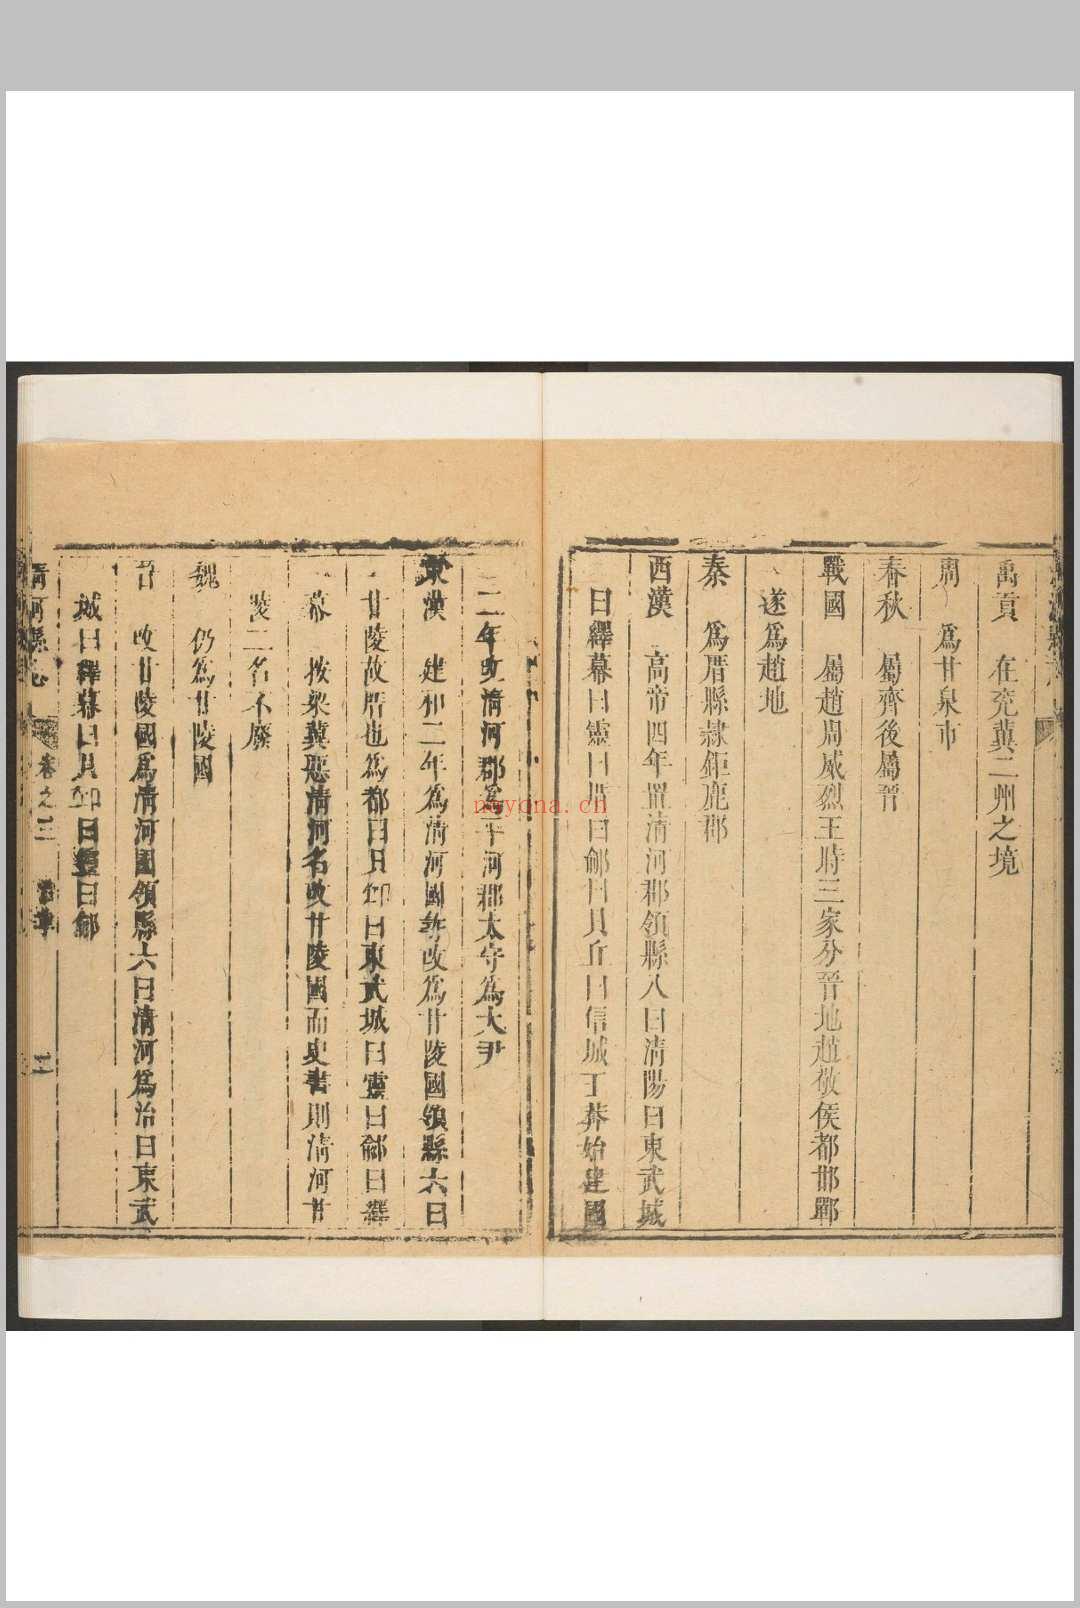 禹貢 在兖冀二州之境
周 爲甘泉市
春秋 屬齊後屬晉
戰國 屬趙周威烈王時三家分晉地趙敬侯都邯鄲
遂爲趙地
秦 爲厝縣隷鉅鹿郡
西漢 高帝四年置清河郡領縣八曰清陽曰東武城
曰繹幕曰靈曰厝曰鄃曰貝丘曰信城王莽始建國
二年改清河郡爲平河郡太守爲大尹
東漢 建和二年爲清河國尋改爲甘陵國領縣六曰
甘陵故厝也爲都曰貝丘曰東武城曰靈曰鄃曰繹
幕 按梁冀惡清河名改甘陵國而史書則清河甘
陵二名不廢
魏 仍爲甘陵國
晉 改甘陵國爲清河國領縣六曰清河爲治曰東武
城曰繹幕曰貝丘曰靈曰鄃
清河縣志 卷之三
noyona.cn